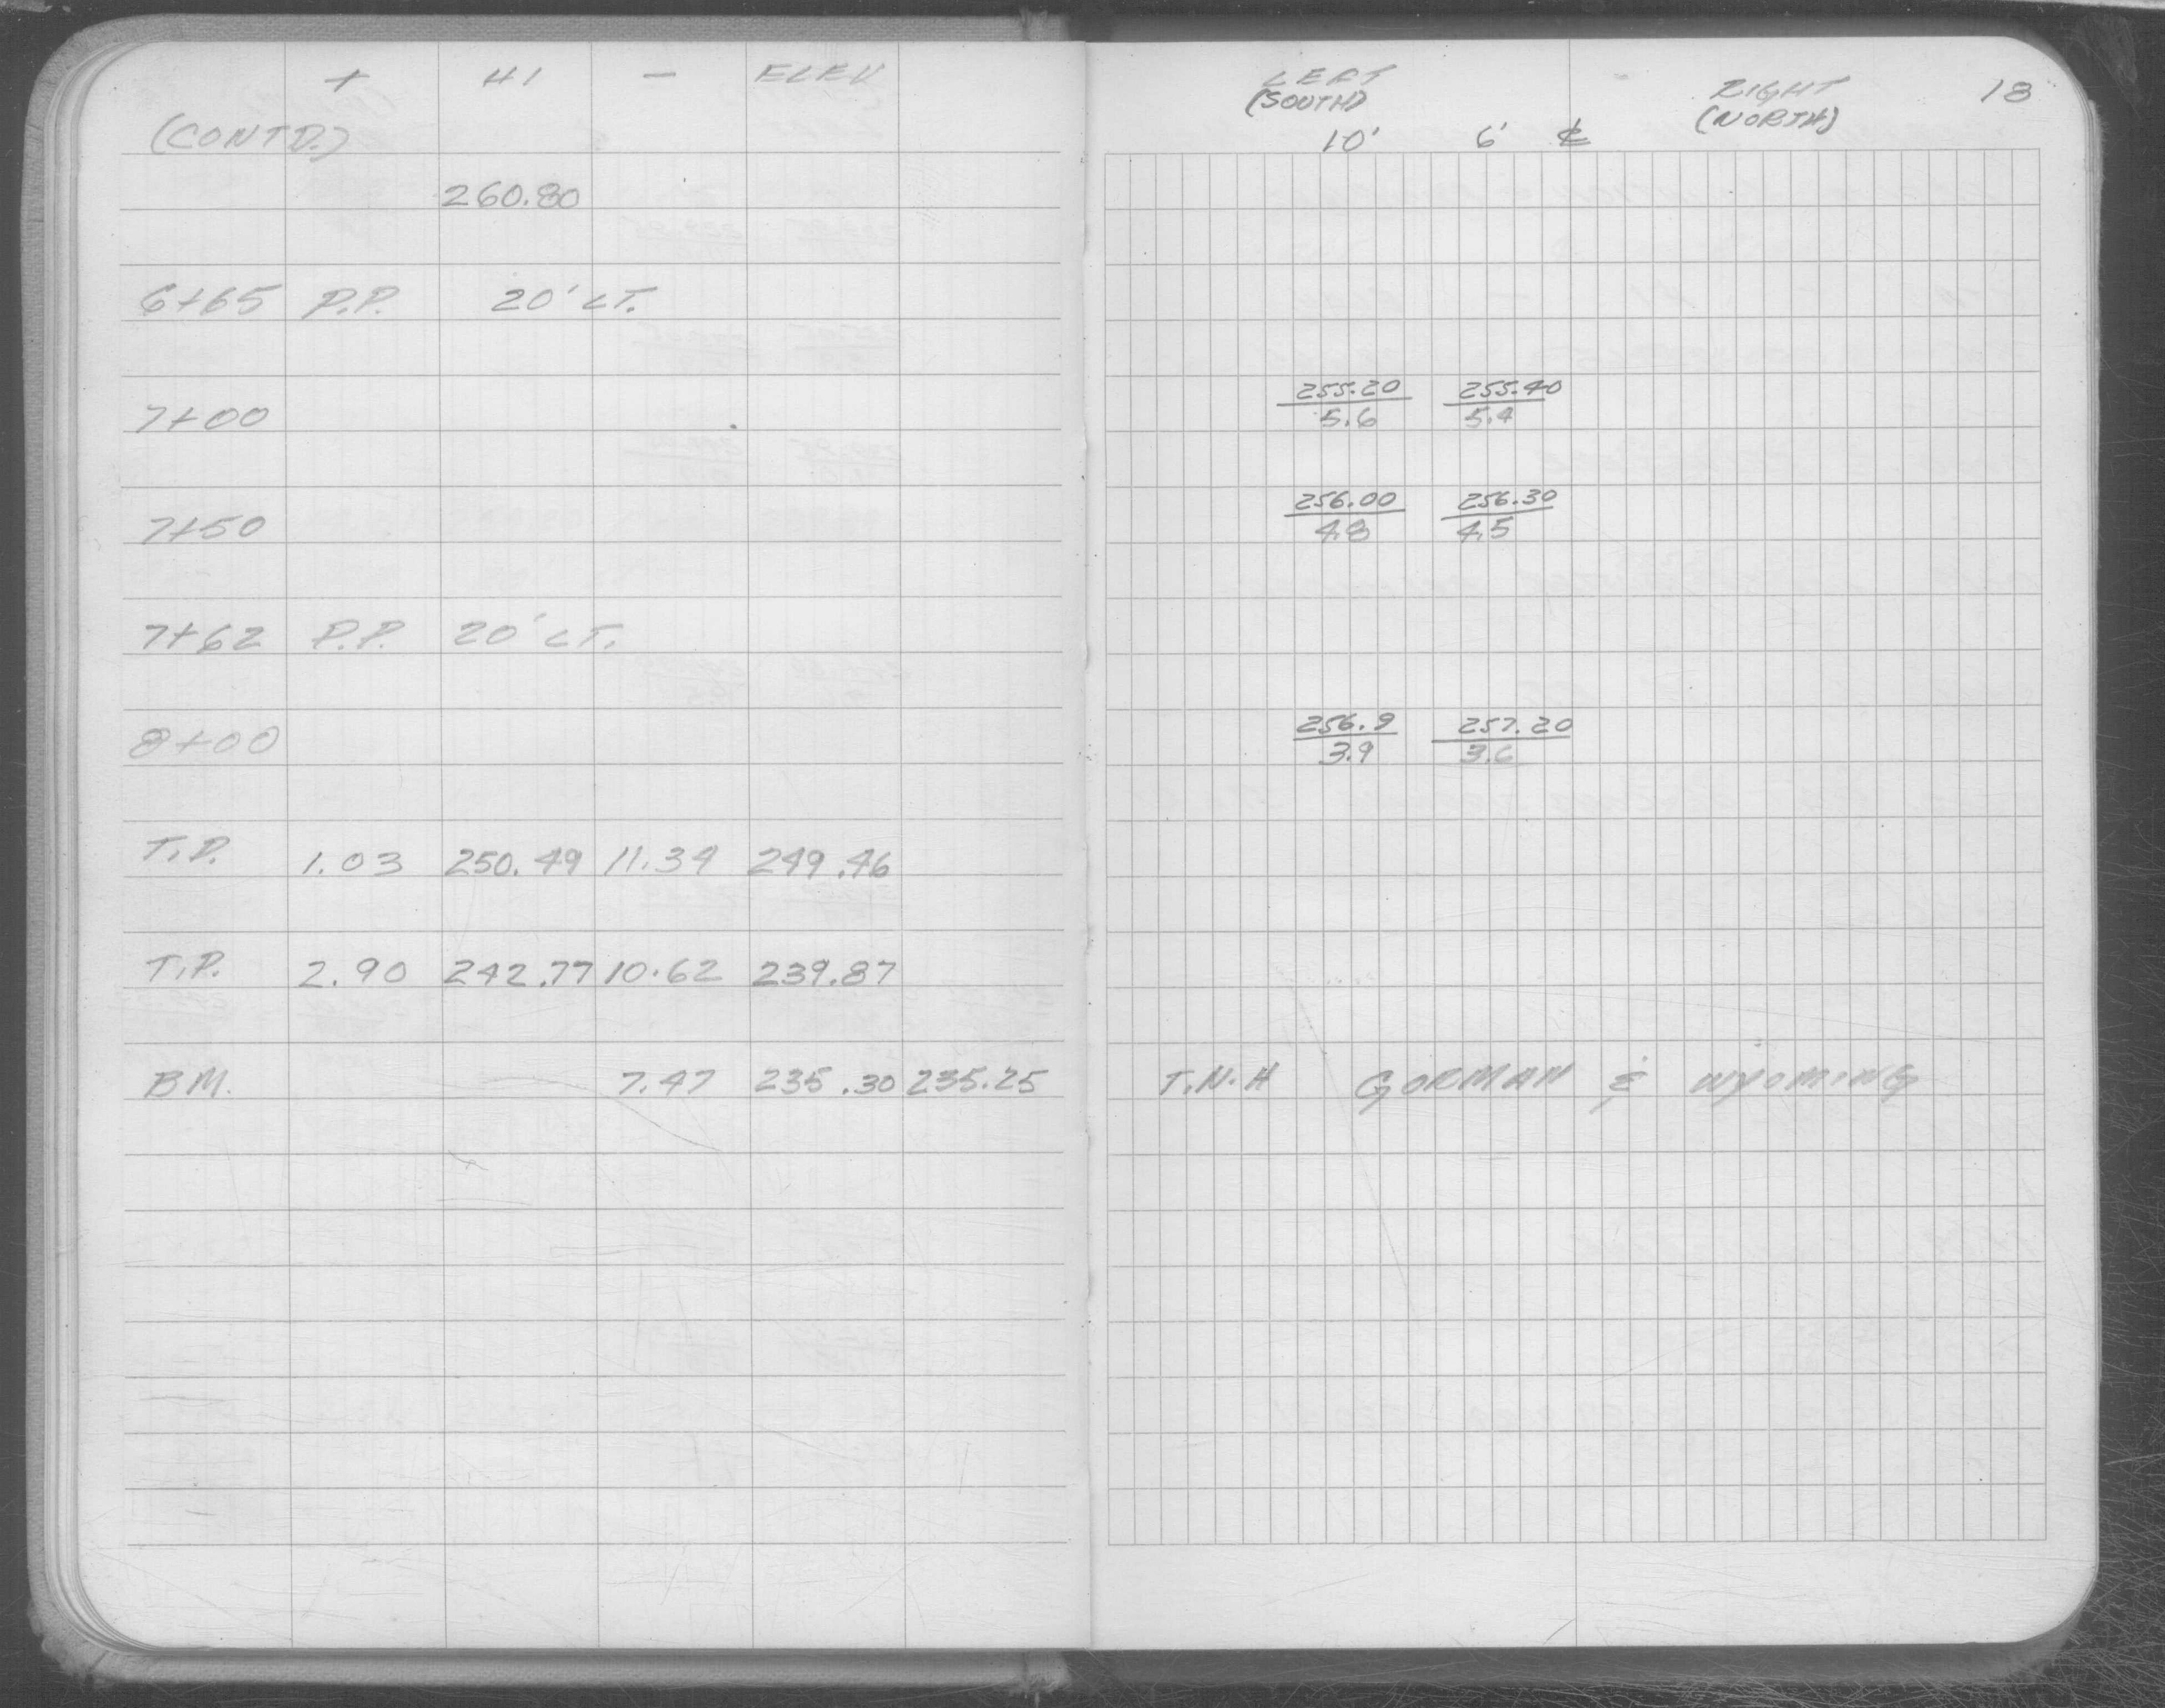 + HI - ELEV
(CONTD.)
260.80
6+65 P.P. 20' LT.
7+00
7+50
7+62 P.P. 20' LT.
8+00
T.P. 1.03 250.49 11.34 249.46
T.P. 2.90 242.77 10.62 239.87
BM. 7.47 235.30 235.25
LEFT RIGHT 18
(SOUTH) (NORTH)
10' 6' ℄
255.20 255.40
5.6 5.4
256.00 256.30
4.8 4.5
256.9 257.20
3.9 3.6
T.N.H GORMAN & WYOMING